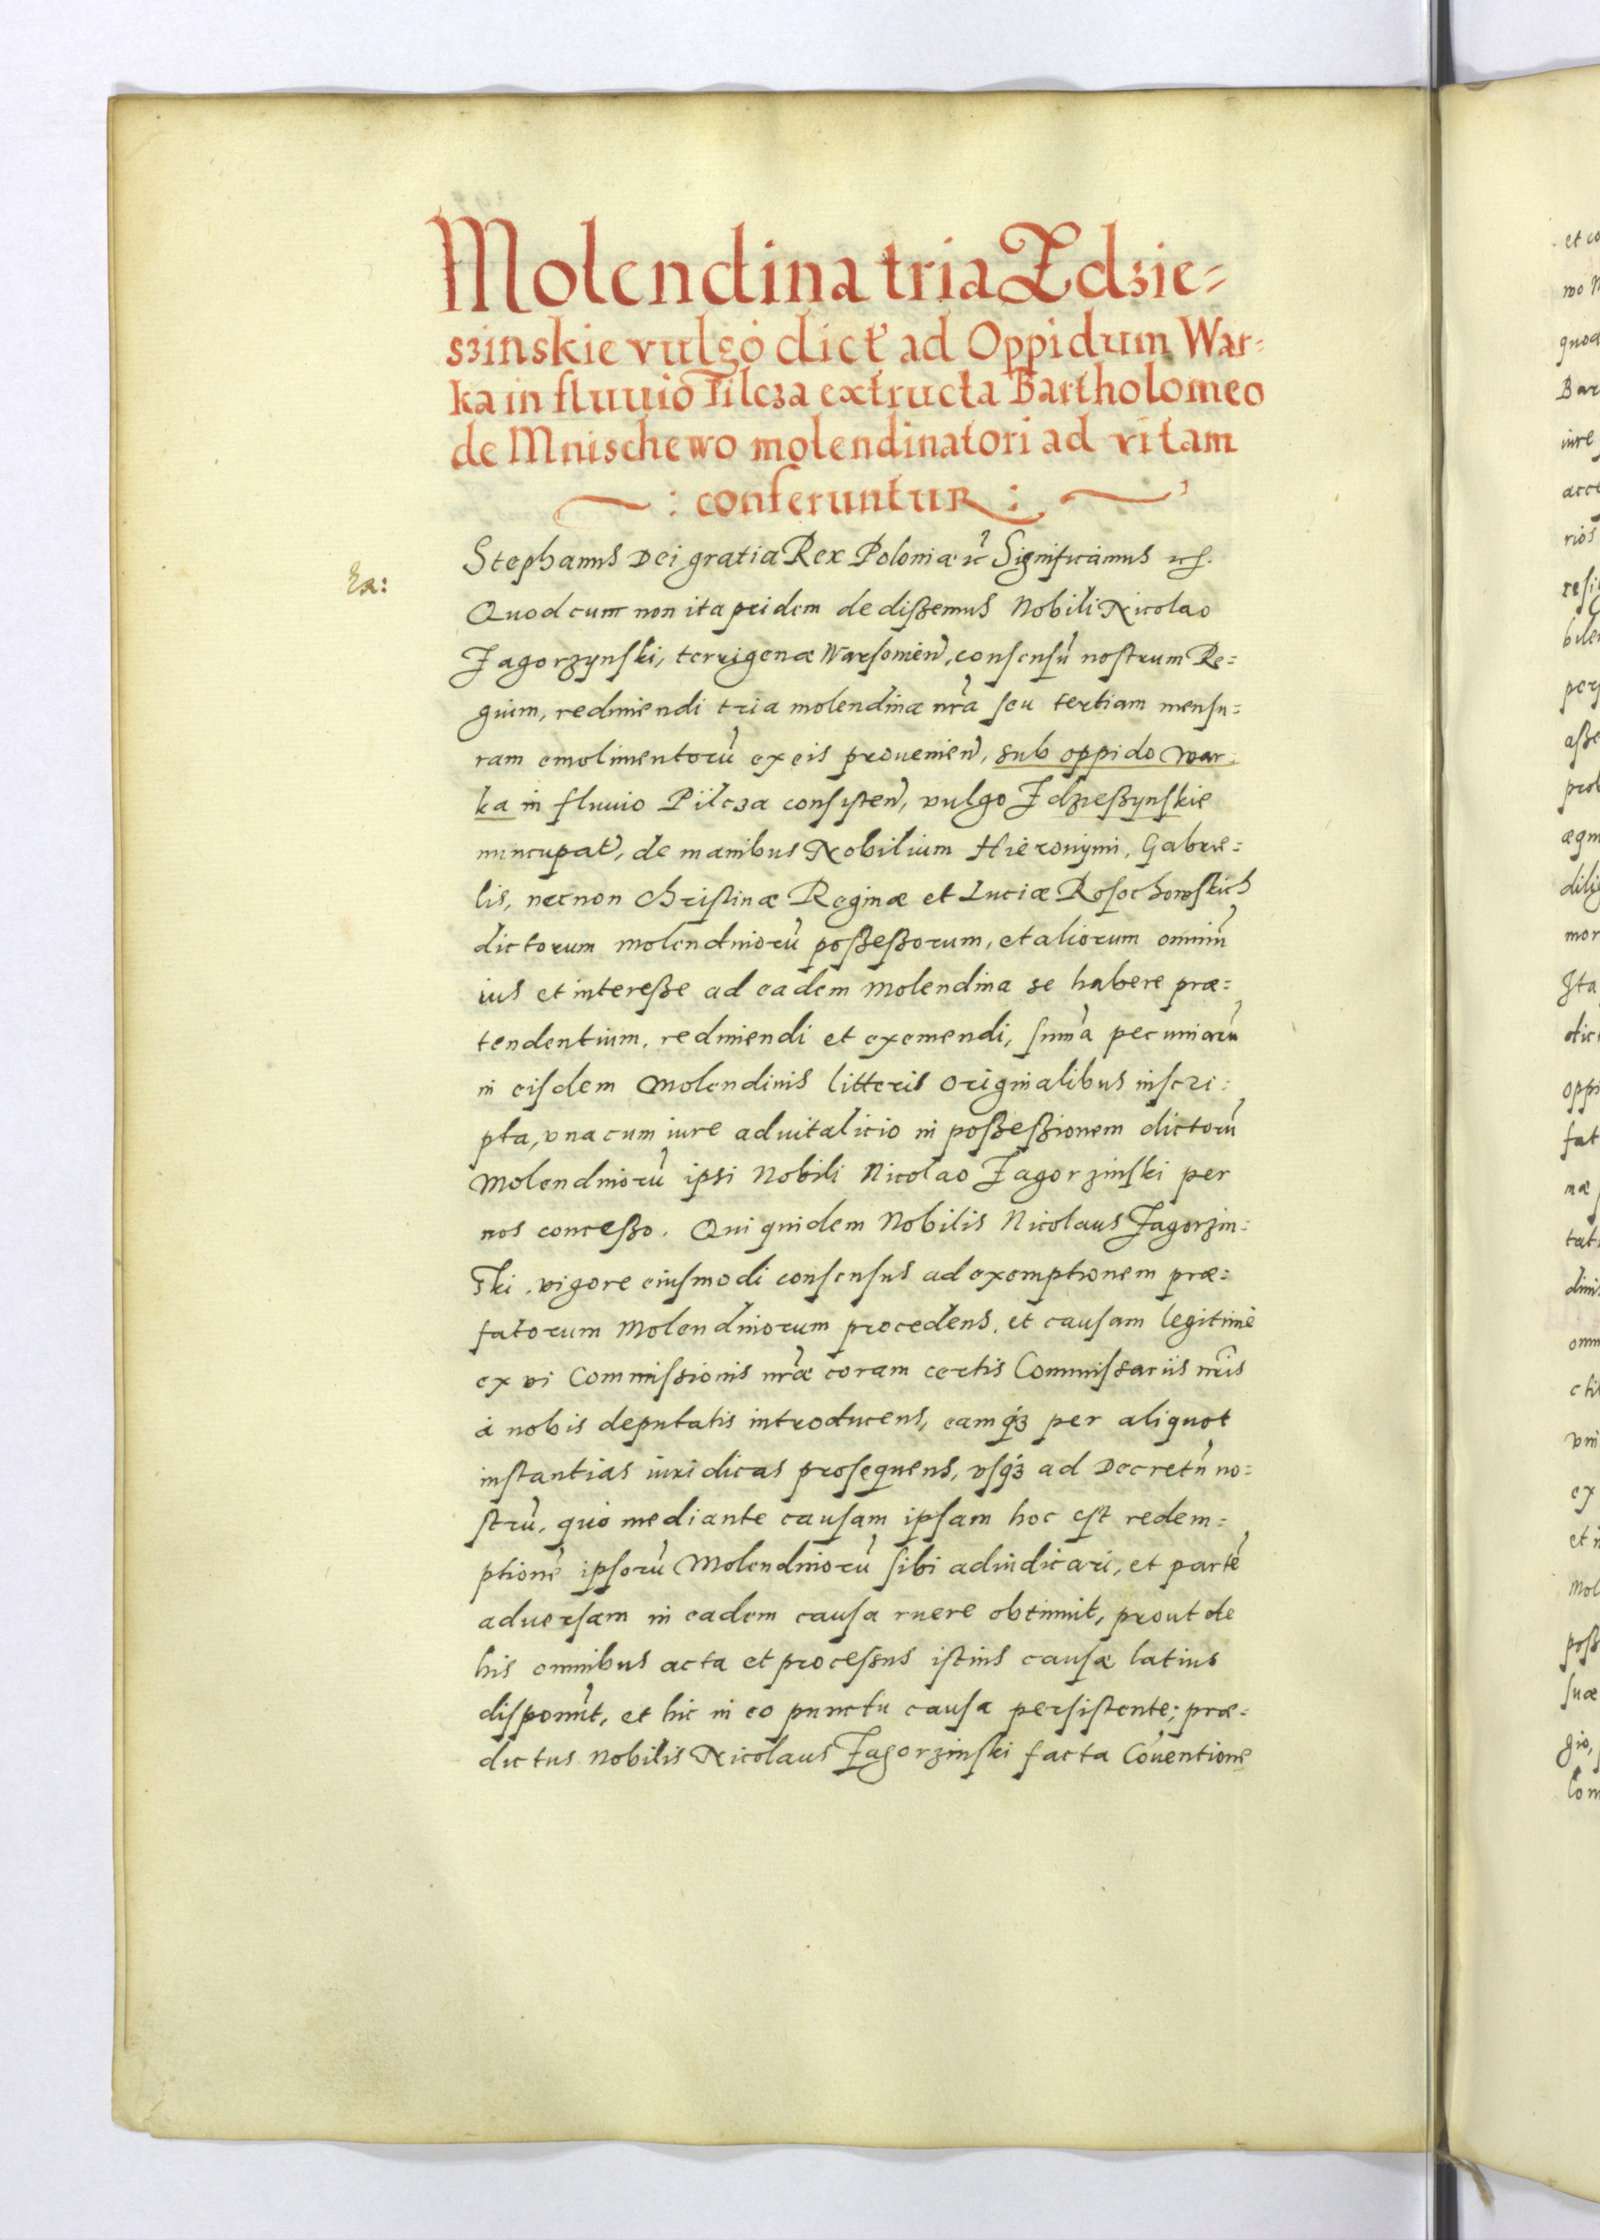 Molendina tria Zdzie=
szinskie vulgo dict' ad Oppidum War=
ka in fluuio Pilcza extructa Bartholomeo
de Mnischewo molendinatori ad vitam
: conferuntur :
Stephanus Dei gratia Rex Poloniæ etc Significamus etc.
Ex:
Quod cum non ita pridem dedißemus Nobili Nicolao
Zagorzynski, terrigenæ Warsouien̄, consensū nostrum Re=
gium, redimendi tria molendina nr̄a seu tertiam mensu=
ram emolimentorū ex eis prouenien̄, sub oppido War=
ka in fluuio Pilcza consisten̄, vulgo Zdzießynskie
nuncupat̄, de manibus Nobilium Hieronymi, Gabrie=
lis, necnon Christinæ Reginæ et Luciæ Rosochowskich
dictorum molendinorū poßeßorum, et aliorum omniū
ius et intereße ad eadem molendina se habere præ=
tendentium, redimendi et exemendi, sum̄a pecuniarū
in eisdem Molendinis litteris originalibus inscri=
pta, vna cum iure aduitalicio in poßeßionem dictorū
Molendinorū ipsi Nobili Nicolao Zagorzinski per
nos conceßo. Qui quidem Nobilis Nicolaus Zagorzin=
ski, vigore eiusmodi consensus ad exemptionem præ=
fatorum Molendinorum procedens, et causam legitimè
ex vi Commissionis nr̄æ coram certis Commissariis nr̄is
à nobis deputatis introducens, eamq́ꝫ per aliquot
instantias iuridicas prosequens, vsq́ꝫ ad Decretū no=
strū, quo mediante causam ipsam hoc est redem=
ptionē ipsorū Molendinorū sibi adiudicari, et partē
aduersam in eadem causa ruere obtinuit, prout de
his omnibus acta et processus istius causæ latius
disponūt, et hic in eo punctu causa persistente; præ=
dictus Nobilis Nicolaus Zagorzinski facta Cōuentione